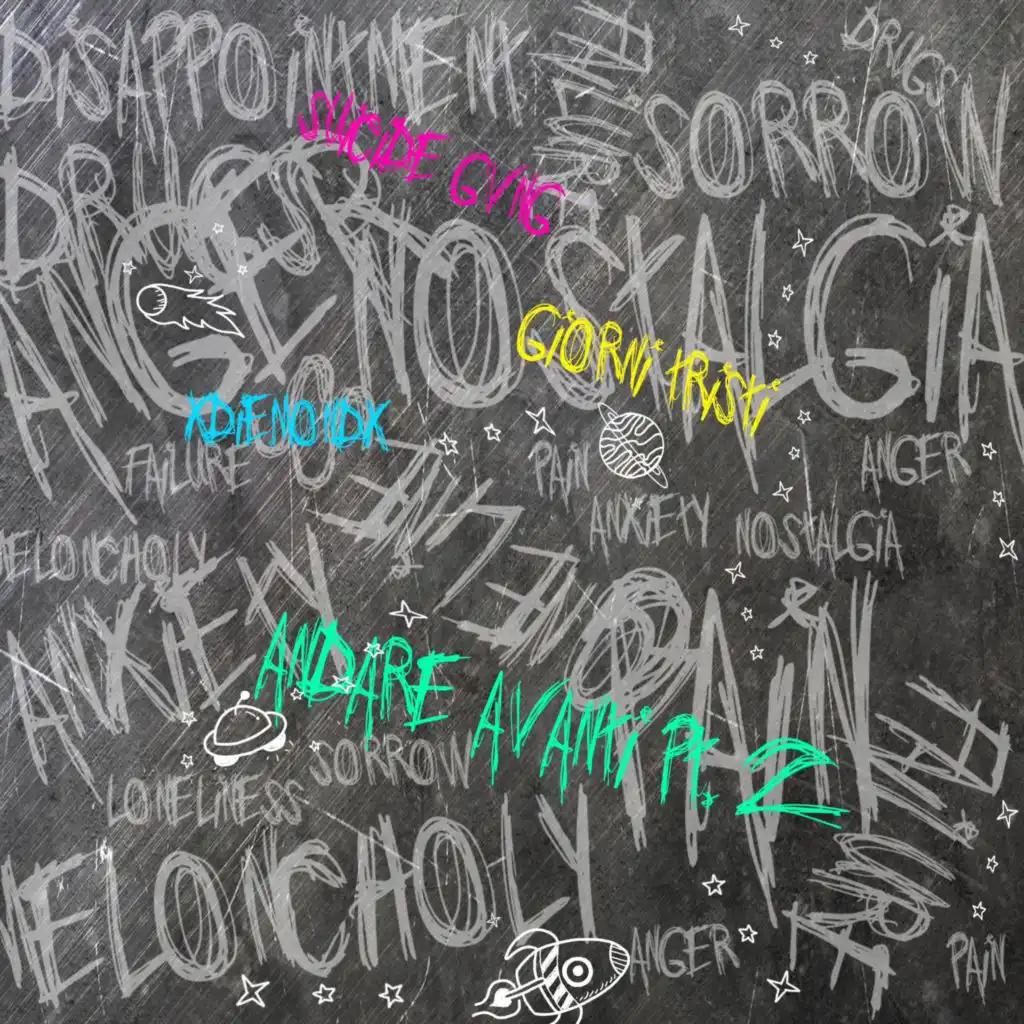 DISAPPOINTMENT
DRUGS
FAILURE
SORROW
DRUGS
SUICIDE GVNG
ANGER
NOSTALGIA
GIORNI TRISTI
XDIENOWDX
FAILURE
PAIN
ANGER
ANXIETY
NOSTALGIA
MELONCHOLY
ANXIETY
PAIN
ANDARE AVANTI Pt. 2
SORROW
LONELINESS
MELONCHOLY
ANGER
PAIN